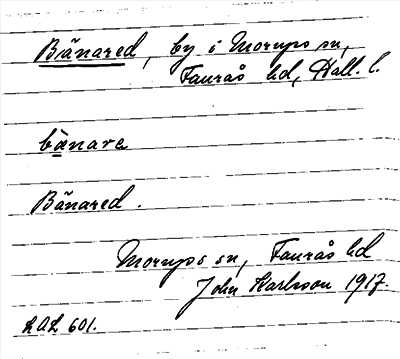 Bänared, by i Morups sn,
Faurås hd, Hall. l.
bänare
Bänared.
Morups sn, Faurås hd
John Karlsson 1917.